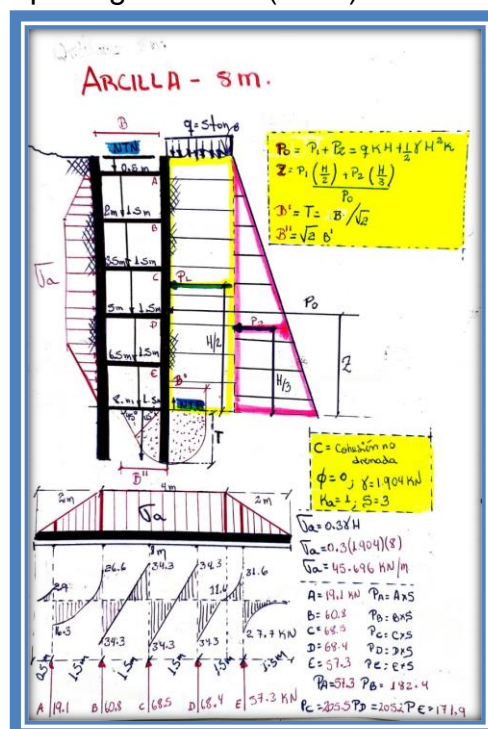 ARCILLA - 8m.
B
q=5ton
NTN
0.5m
A
2m
1.5m
B
3.5m
1.5m
C
5m
1.5m
D
6.5m
1.5m
E
8.m
1.5m
B'
NTE
45°
B''
T
σa
P1
H/2
H/3
Po
Z
Po = P1 + P2 = qKH + 1/2 γH²K
Z = P1 (H/2) + P2 (H/3)
Po
B' = T = B/√2
B'' = √2 B'
C = Cohesión no
drenada
φ=0, γ=1.904 KN
Ka=1, S=3
2m
4m
2m
σa
8m
σa=0.3γH
σa=0.3(1.904)(8)
σa=45.696 KN/m
26.6
34.3
34.3
31.6
34.3
34.3
27.7 KN
0.5m
1.5m
1.5m
1.5m
1.5m
1.5m
A 19.1
B 60.8
C 68.5
D 68.4
E 57.3 KN
A=19.1 KN PA=A×S
B=60.8 PB=B×S
C=68.5 PC=C×S
D=68.4 PD=D×S
E=57.3 PE=E×S
PA=57.3 PB=182.4
PC=205.5 PD=205.2 PE=171.9